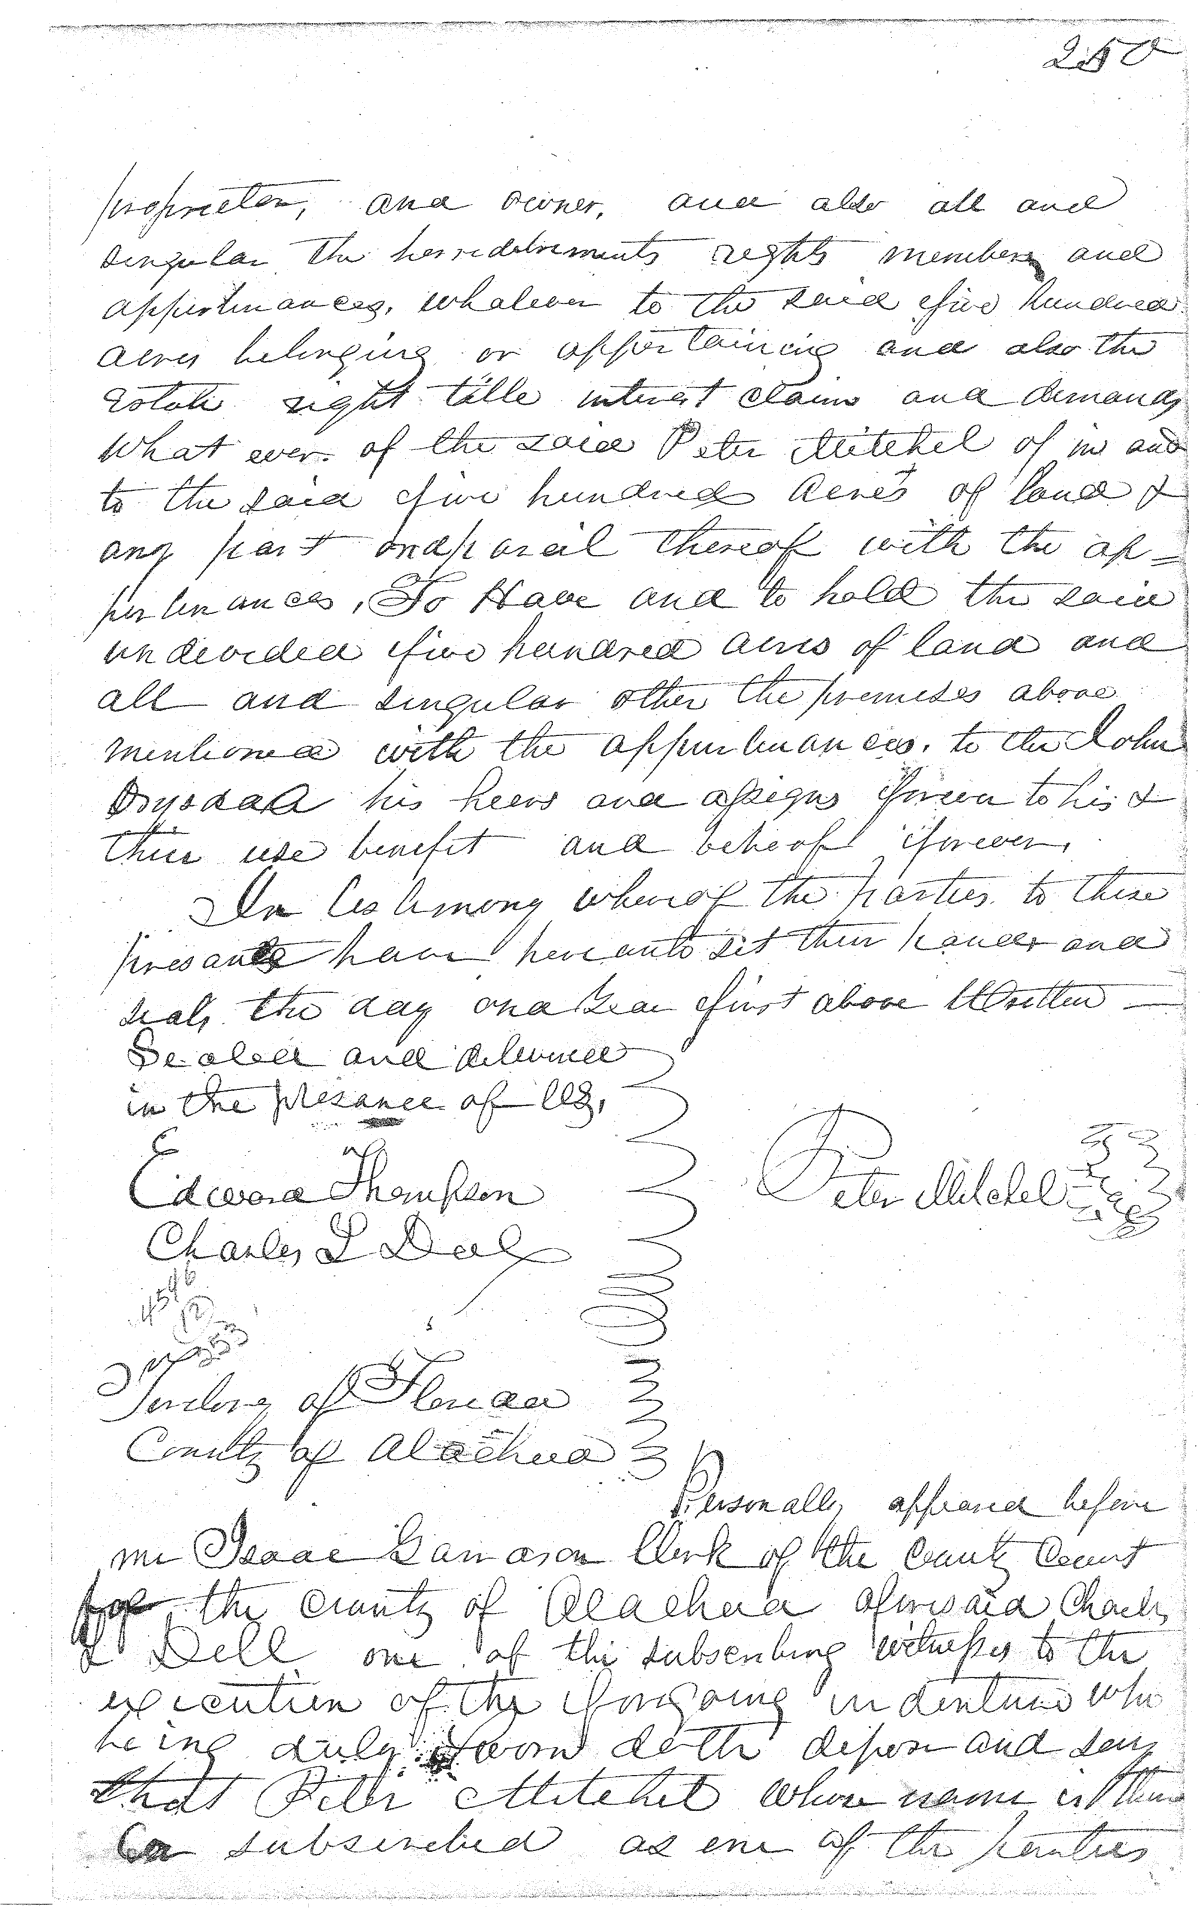 250
proprietor, and owner, and also all and
singular the herredetrements rights members and
appurtinances, whatever to the said five hundred
acres belonging or appertaining and also the
Estate right title interest claim and demands
What ever of the said Peter Mitchel of in and
to the said five hundred Acres of land &
any part and parcil thereof with the ap=
purtinances, To Have and to hold the said
undevided five hundred acres of land and
all and singular other the premises above
mentioned with the appurtinances, to the John
Drysdall his heers and assigns forever to his &
thier use benefit and behoof forever,
In testimony whereof the parties to these
presants have hereunto set their hands and
seals the day and Year first above Written —
Sealed and delivered
in the presance of us,
Edward Thompson
Charles L Dell
Peter Mitchel
Territory of Florida
County of Alachua
Personally appeared before
me Isaac Garrason Clerk of the County Court
for the County of Alachua aforesaid Charles
L Dell one of the subscribing witnesses to the
execution of the forgoing indenture who
being duly sworn doth depose and say
that Peter Mitchel whose name is there
to subscribed as one of the parties